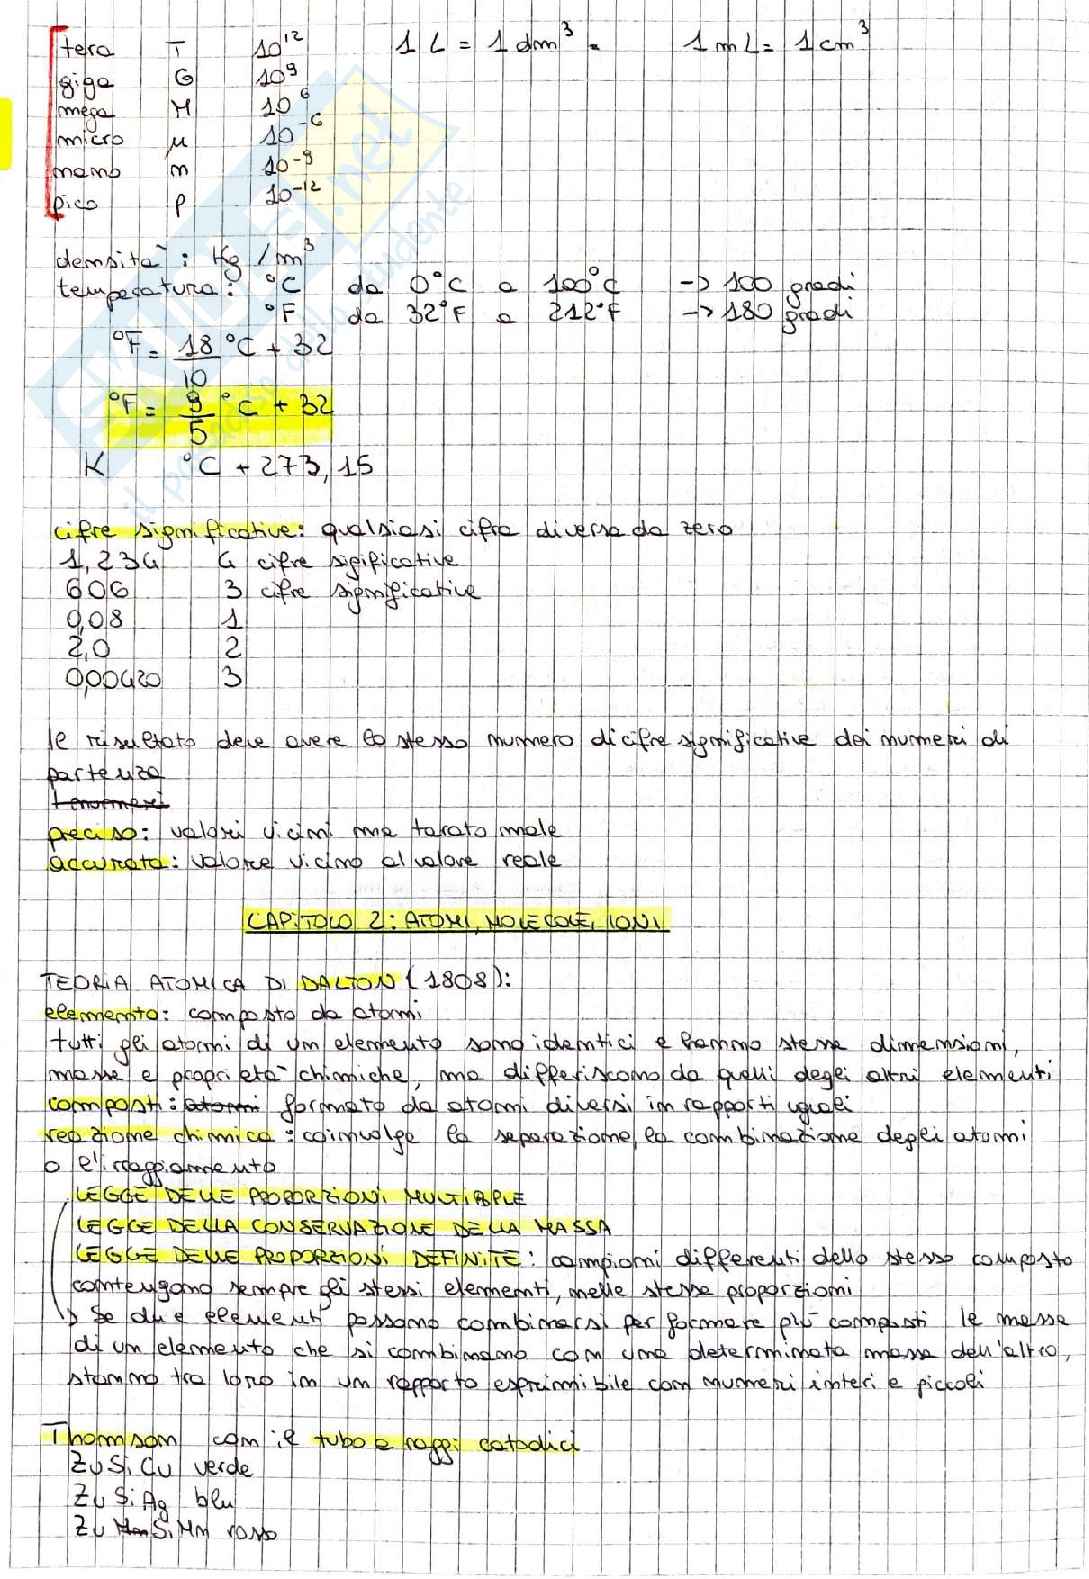 tera T 10¹² 1 L = 1 dm³ = 1 mL = 1 cm³
giga G 10⁹
mega M 10⁶
micro μ 10⁻⁶
nano n 10⁻⁹
pico p 10⁻¹²
densità: Kg/m³
temperatura: °C da 0°C a 100°C -> 100 gradi
°F da 32°F a 212°F -> 180 gradi
°F = 18/10 °C + 32
°F = 9/5 °C + 32
K °C + 273,15
cifre significative: qualsiasi cifra diversa da zero
1,234 4 cifre sigificative
606 3 cifre significative
0,08 1
2,0 2
0,00420 3
il risultato deve avere lo stesso numero di cifre significative dei numeri di
partenza
preciso: valori vicini ma tarato male
accurato: valore vicino al valore reale
CAPITOLO 2: ATOMI, MOLECOLE, IONI
TEORIA ATOMICA DI DALTON (1808):
elemento: composto da atomi
tutti gli atomi di un elemento sono identici e hanno stesse dimensioni,
masse e proprietà chimiche, ma differiscono da quelli degli altri elementi
composti: atomi formato da atomi diversi in rapporti uguali
reazione chimica: coinvolge la separazione, la combinazione degli atomi
o
LEGGE DELLE PROPORZIONI MULTIPLE
LEGGE DELLA CONSERVAZIONE DELLA MASSA
LEGGE DELLE PROPORZIONI DEFINITE: campioni differenti dello stesso composto
contengono sempre gli stessi elementi, nelle stesse proporzioni
-> Se due elementi possono combinarsi per formare più composti le masse
di un elemento che si combinano con una determinata massa dell'altro,
stanno tra loro in un rapporto esprimibile con numeri interi e piccoli
Thomson con il tubo a raggi catodici
Zn Si Cu verde
Zn Si Ag blu
Zn Si Mn rosso